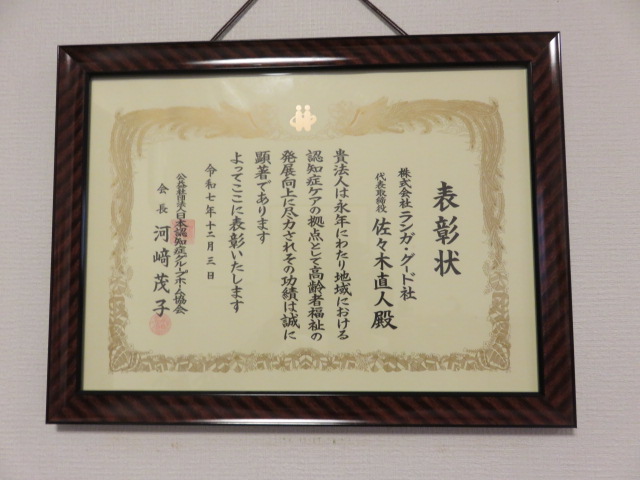 表彰状
株式会社ランガ・グード社
代表取締役 佐々木直人殿
貴法人は永年にわたり地域における
認知症ケアの拠点として高齢者福祉の
発展向上に尽力されその功績は誠に
顕著であります
よってここに表彰いたします
令和七年十二月三日
公益社団法人日本認知症グループホーム協会
会長 河﨑茂子